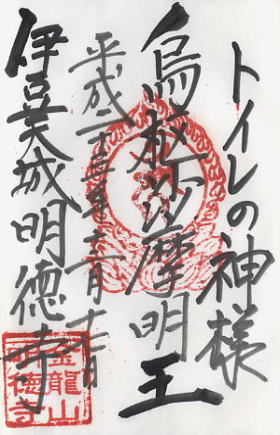 トイレの神様
烏枢沙摩明王
平成二十三年六月十一日
伊豆天城明徳寺
金龍山
明徳寺